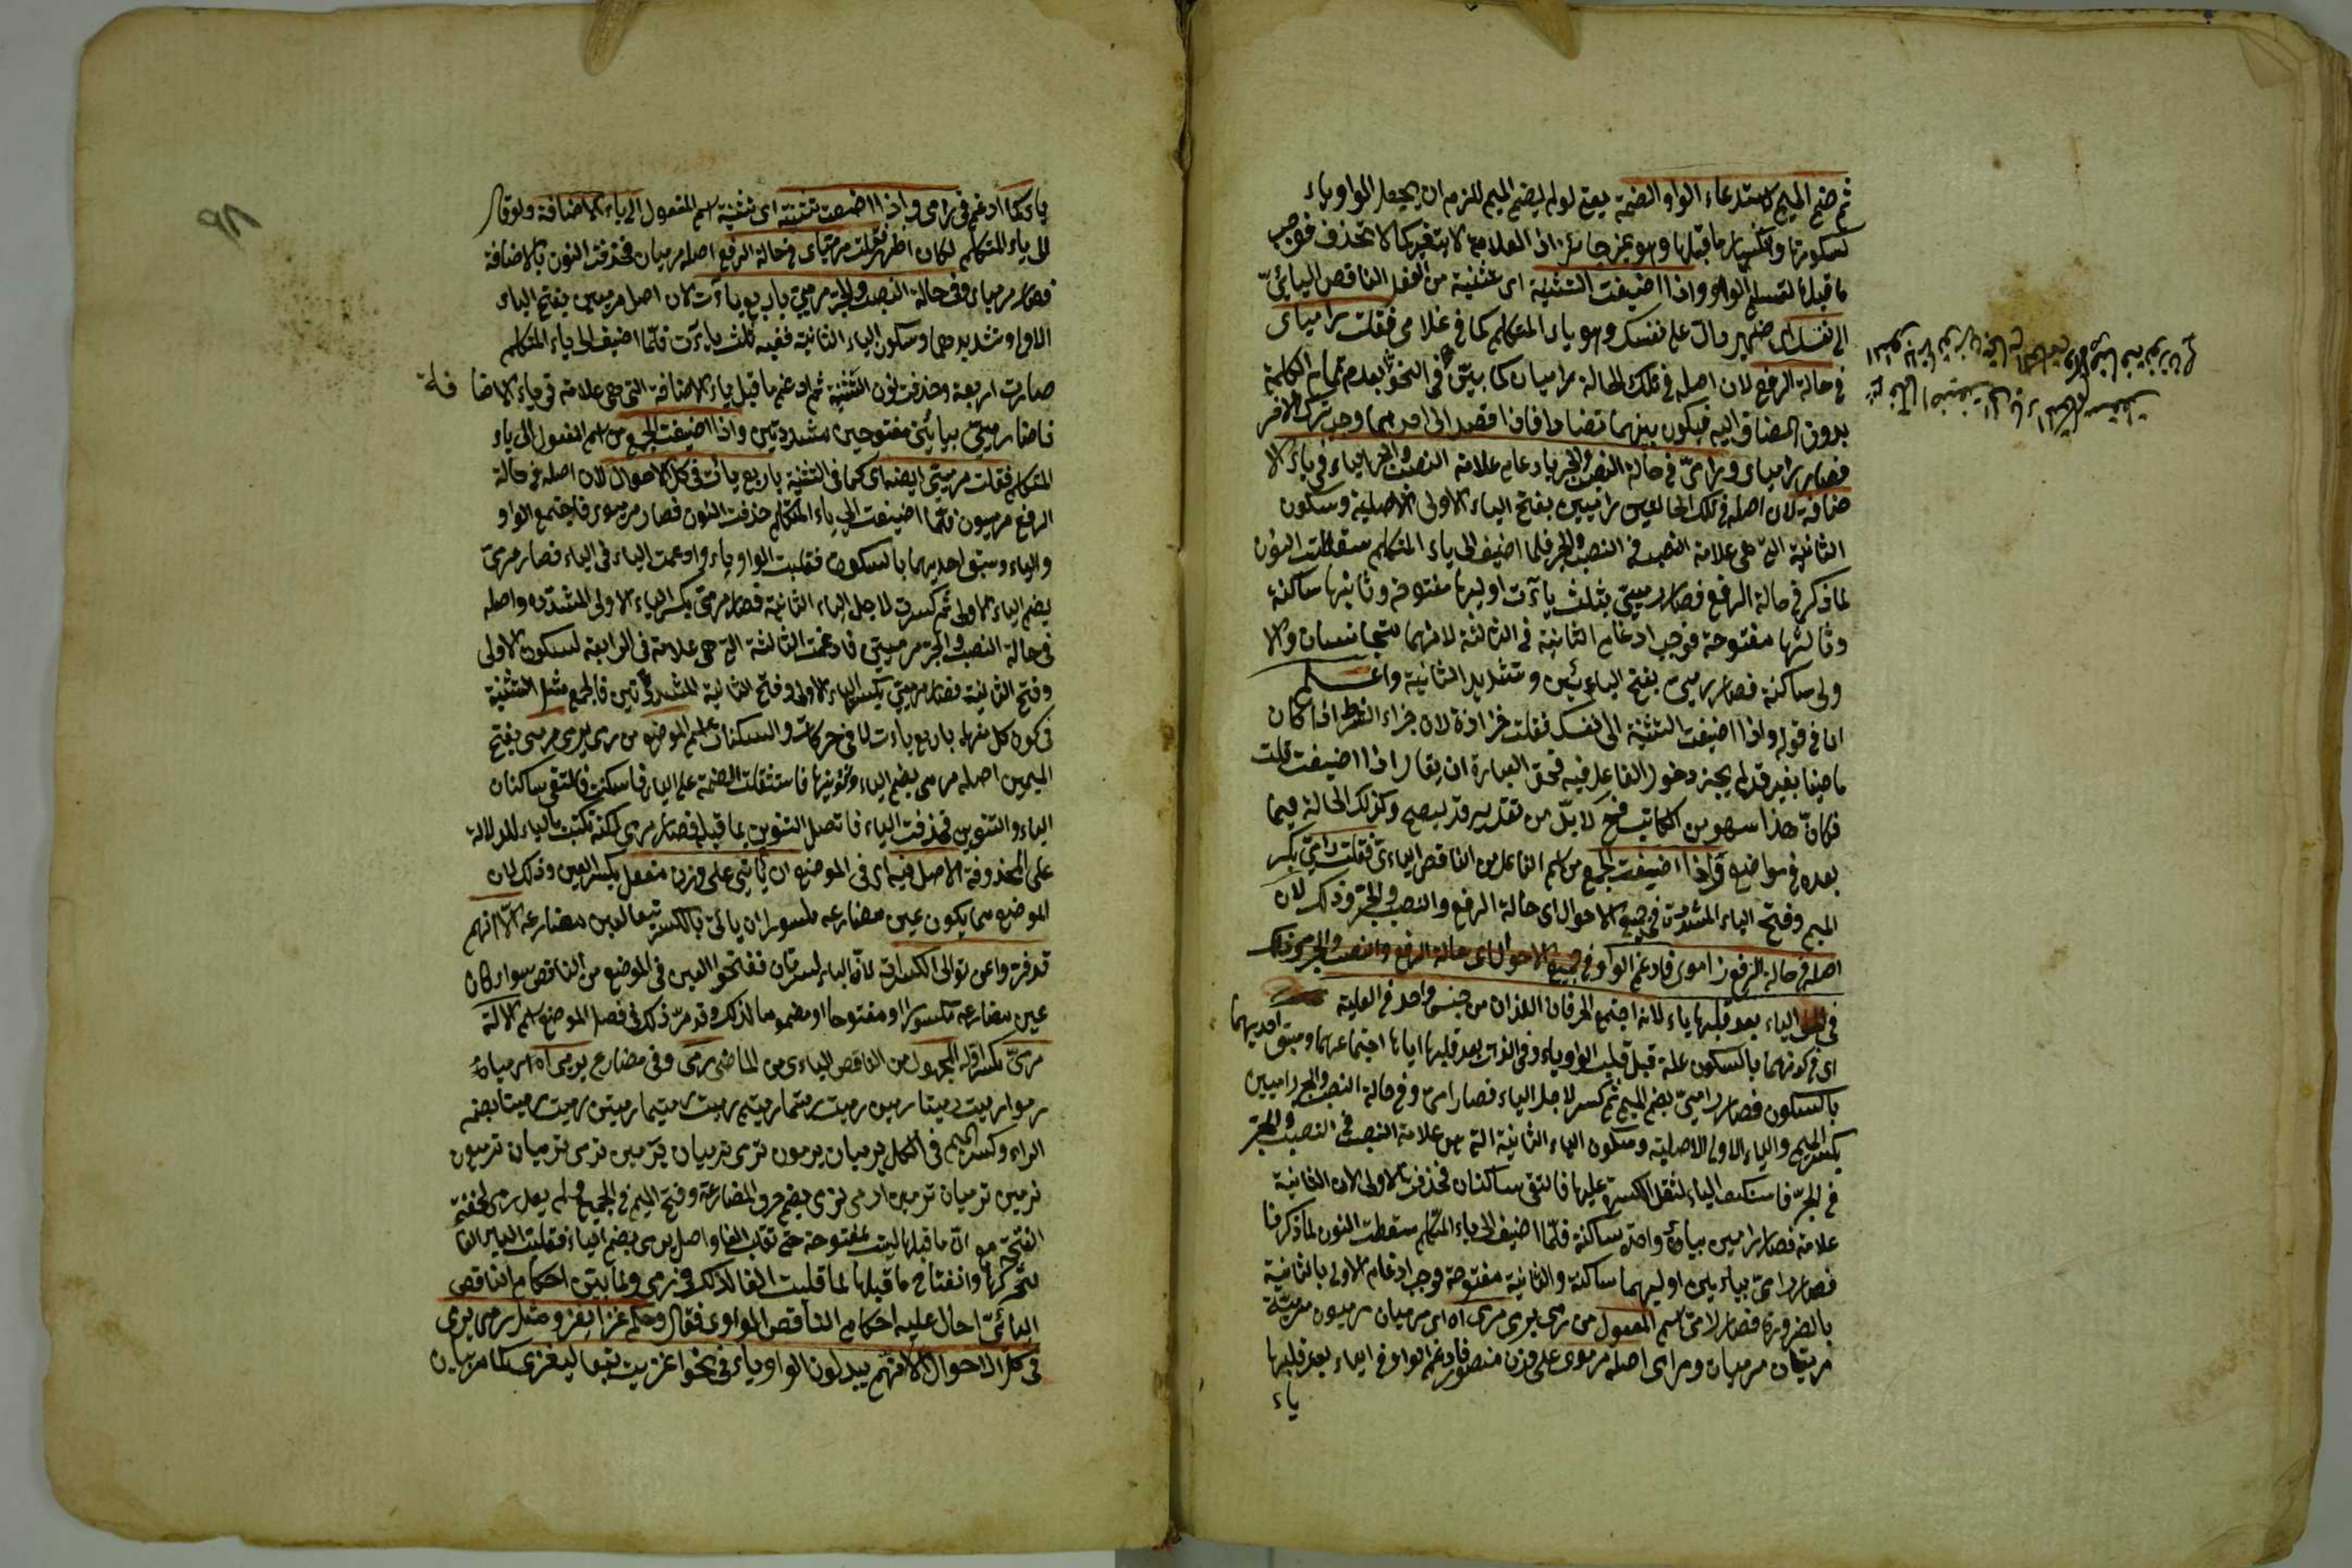 ثم ضم الميم لاستدعاء الواو الضمة يعني لو لم يضم الميم للزم ان يجعل الواو ياء
لسكونها وانكسار ما قبلها وهو غير جائز اذ العلامة لا يتغير كما لا تحذف فوجب
ما قبلها لتسلم الواو واذا اضيفت التثنية اى تثنية من الفعل الناقص اليائىّ
الى نفسك اى ضمير دالّ على نفسك وهو ياء المتكلم كما فى غلامى فقلت راميای
فى حالة الرفع لان اصله فى تلك الحالة راميان كما بيّن فى النحو بعدم تمام الكلمة
بدون المضاف اليه فيكون بينهما تضاد فاذا قصد الى احدهما وجب ترك الآخر
فصار رامياى ورامىّ فى حالة النصب والجر بادغام علامة النصب والجر الياء فى ياء الا
ضافة لان اصله فى تلك الحالتين راميين بفتح الياء الاولى الاصلية وسكون
الثانية التى هى علامة النصب فى النصب والجر فلما اضيف الى ياء المتكلم سقطت النون
لما ذكر فى حالة الرفع فصار رامييى بثلث ياآت اوليها مفتوحة وثانيها ساكنة
وثالثها مفتوحة فوجب ادغام الثانية فى الثالثة لانهما متجانسان والا
ولى ساكنة فصار رامييّ بفتح اليائين وتشديد الثانية واعلم
ان فى قوله واذا اضيفت التثنية الى نفسك فقلت حزازة لان جزاء الشرط اذا كان
ماضيا بغير قد لم يجز دخول الفاء عليه فحق العبارة ان يقال اذا اضيفت قلت
فكانّ هذا سهو من الكاتب فح لا بدّ من تقدير قد ليصح وكذلك الحالة فيما
بعده فى مواضع واذا اضيفت الجمع من اسم الفاعل من الناقص اليائى فقلت رامىّ بكسر
الميم وفتح الياء المشددة فى جميع الاحوال اى حالة الرفع والنصب والجر وذلك لان
اصله فى حالة الرفع راموى فادغم الواو فى جميع الاحوال اى حالة الرفع والنصب والجر وذلك
فى الياء بعد قلبها ياء لانه اجتمع الحرفان اللذان من جنس واحد فى العلية
اى فى كونهما بالسكون علة قبل قلب الواو ياء وفى الذات بعد قلبها اياها اجتماعهما وسبق احديهما
بالسكون فصار رامىّ بضم الميم ثم كسر لاجل الياء فصار رامىّ وفى حالة النصب والجر راميين
بكسر الميم والياء الاولى الاصلية وسكون الياء الثانية التى هى علامة النصب فى النصب والجر
فى الجرّ فاسكنت الياء لثقل الكسرة عليها فالتقى ساكنان فحذفت الاولى لان الثانية
علامة فصار رامين بياء واحدة ساكنة فلمّا اضيف الى ياء المتكلم سقطت النون لما ذكرنا
فصار رامىّ بيائين اوليهما ساكنة والثانية مفتوحة وجب ادغام الاولى بالثانية
بالضرورة فصار رامىّ اسم المفعول من رمى يرمى مرمىّ اه اى مرميان مرميون مرميّة
مرميتان مرميات ومرامى اصله مرموى على وزن منصور فادغم الواو فى الياء بعد قلبها
ياء
ياء كما ادغم فى رامى واذا اضيفت تثنية اى تثنية اسم المفعول الى ياء الاضافة ولو قال
الى ياء المتكلم لكان اظهر فقلت مرمياى فى حالة الرفع اصله مرميان فحذفت النون بالاضافة
فصار مرمياى وفى حالة النصب والجر مرمييّ باربع ياآت لان اصل مرميين بفتح الياء
الاولى وتشديدها وسكون الياء الثانية ففيه ثلث ياآت فلمّا اضيف الى ياء المتكلم
صارت اربعة وحذفت نون التثنية ثم ادغم ما قبل ياء الاضافة التى هى علامة فى ياء الاضافة
فصار مرمييّ بيائين مفتوحين مشددتين واذا اضيفت الجمع من اسم المفعول الى ياء
المتكلم فقلت مرميّى ايضا اى كما فى التثنية باربع ياآت فى كل الاحوال لان اصله فى حالة
الرفع مرميون فلمّا اضيفت الى ياء المتكلم حذفت النون فصار مرميوى فاجتمع الواو
والياء وسبق احديهما بالسكون فقلبت الواو ياء وادغمت الياء فى الياء فصار مرمىّ
بضم الياء الاولى ثم كسرت لاجل الياء الثانية فصار مرمىّ بكسر الياء الاولى المشددة واصله
فى حالة النصب والجر مرمييى فادغمت الثالثة التى هى علامة فى الرابعة لسكون الاولى
وفتح الثانية فصار مرمييّ بكسر الياء الاولى وفتح الثانية المشددتين فالجمع مثل التثنية
فى كون كل منهما باربع ياءت لا فى حركات والسكنات اسم الموضع من رمى يرمى مرمى بفتح
الميمين اصله مرمى بضم الياء وتنوينها فاستثقلت الضمة على الياء فاسكنت فالتقى ساكنان
الياء والتنوين فحذفت الياء فاتصل التنوين بما قبلها فصار مرمى لكنه تكتب بالياء للدلالة
على المحذوفة الاصل فيه اى فى الموضع ان يأتى على وزن مفعل بكسر العين وذلك لان
الموضع مما يكون عين مضارعه مكسورا ان يأتى بالكسر تبعا لعين مضارعه الّا انهم
قد فروا عن توالى الكسرات لانّ الياء كسرتان ففتحوا العين فى الموضع من الناقص سواء كان
عين مضارعه مكسورا او مفتوحا او مضموما لذلك وقد مرّ ذكره فى فصل الموضع اسم الآلة
مرمىً بكسر اوله المجهول من الناقص اليائى من الماضى رمى وفى مضارع يرمى اه رميا
رموا رميت رميتا رمين رميت رميتما رميتم رميت رميتما رميتن رميت رمينا بضم
الراء وكسر الميم فى الكل يرميان يرمون ترمى ترميان يرمين ترمى ترميان ترمون
ترمين ترميان ترمين ارمى نرمى بضم حرف المضارعة وفتح الميم فى الجميع ولم يعل رمى لخفة
الفتحة مع انّ ما قبلها ليست بمفتوحة حتى تقلب الفا واصل يرمى يرمى بضم الياء فقلبت الياء الفا
لتحركها وانفتاح ما قبلها كما قلبت الفا لذلك فى رمى ولما بيّن احكام الناقص
اليائىّ احال عليه احكام الناقص الواوى فقال وحكم غزا يغزو مثل رمى يرمى
فى كل الاحوال الا انهم يبدلون الواو ياء فى نحو اغزيت تبعا ليغزى كما مر بيان